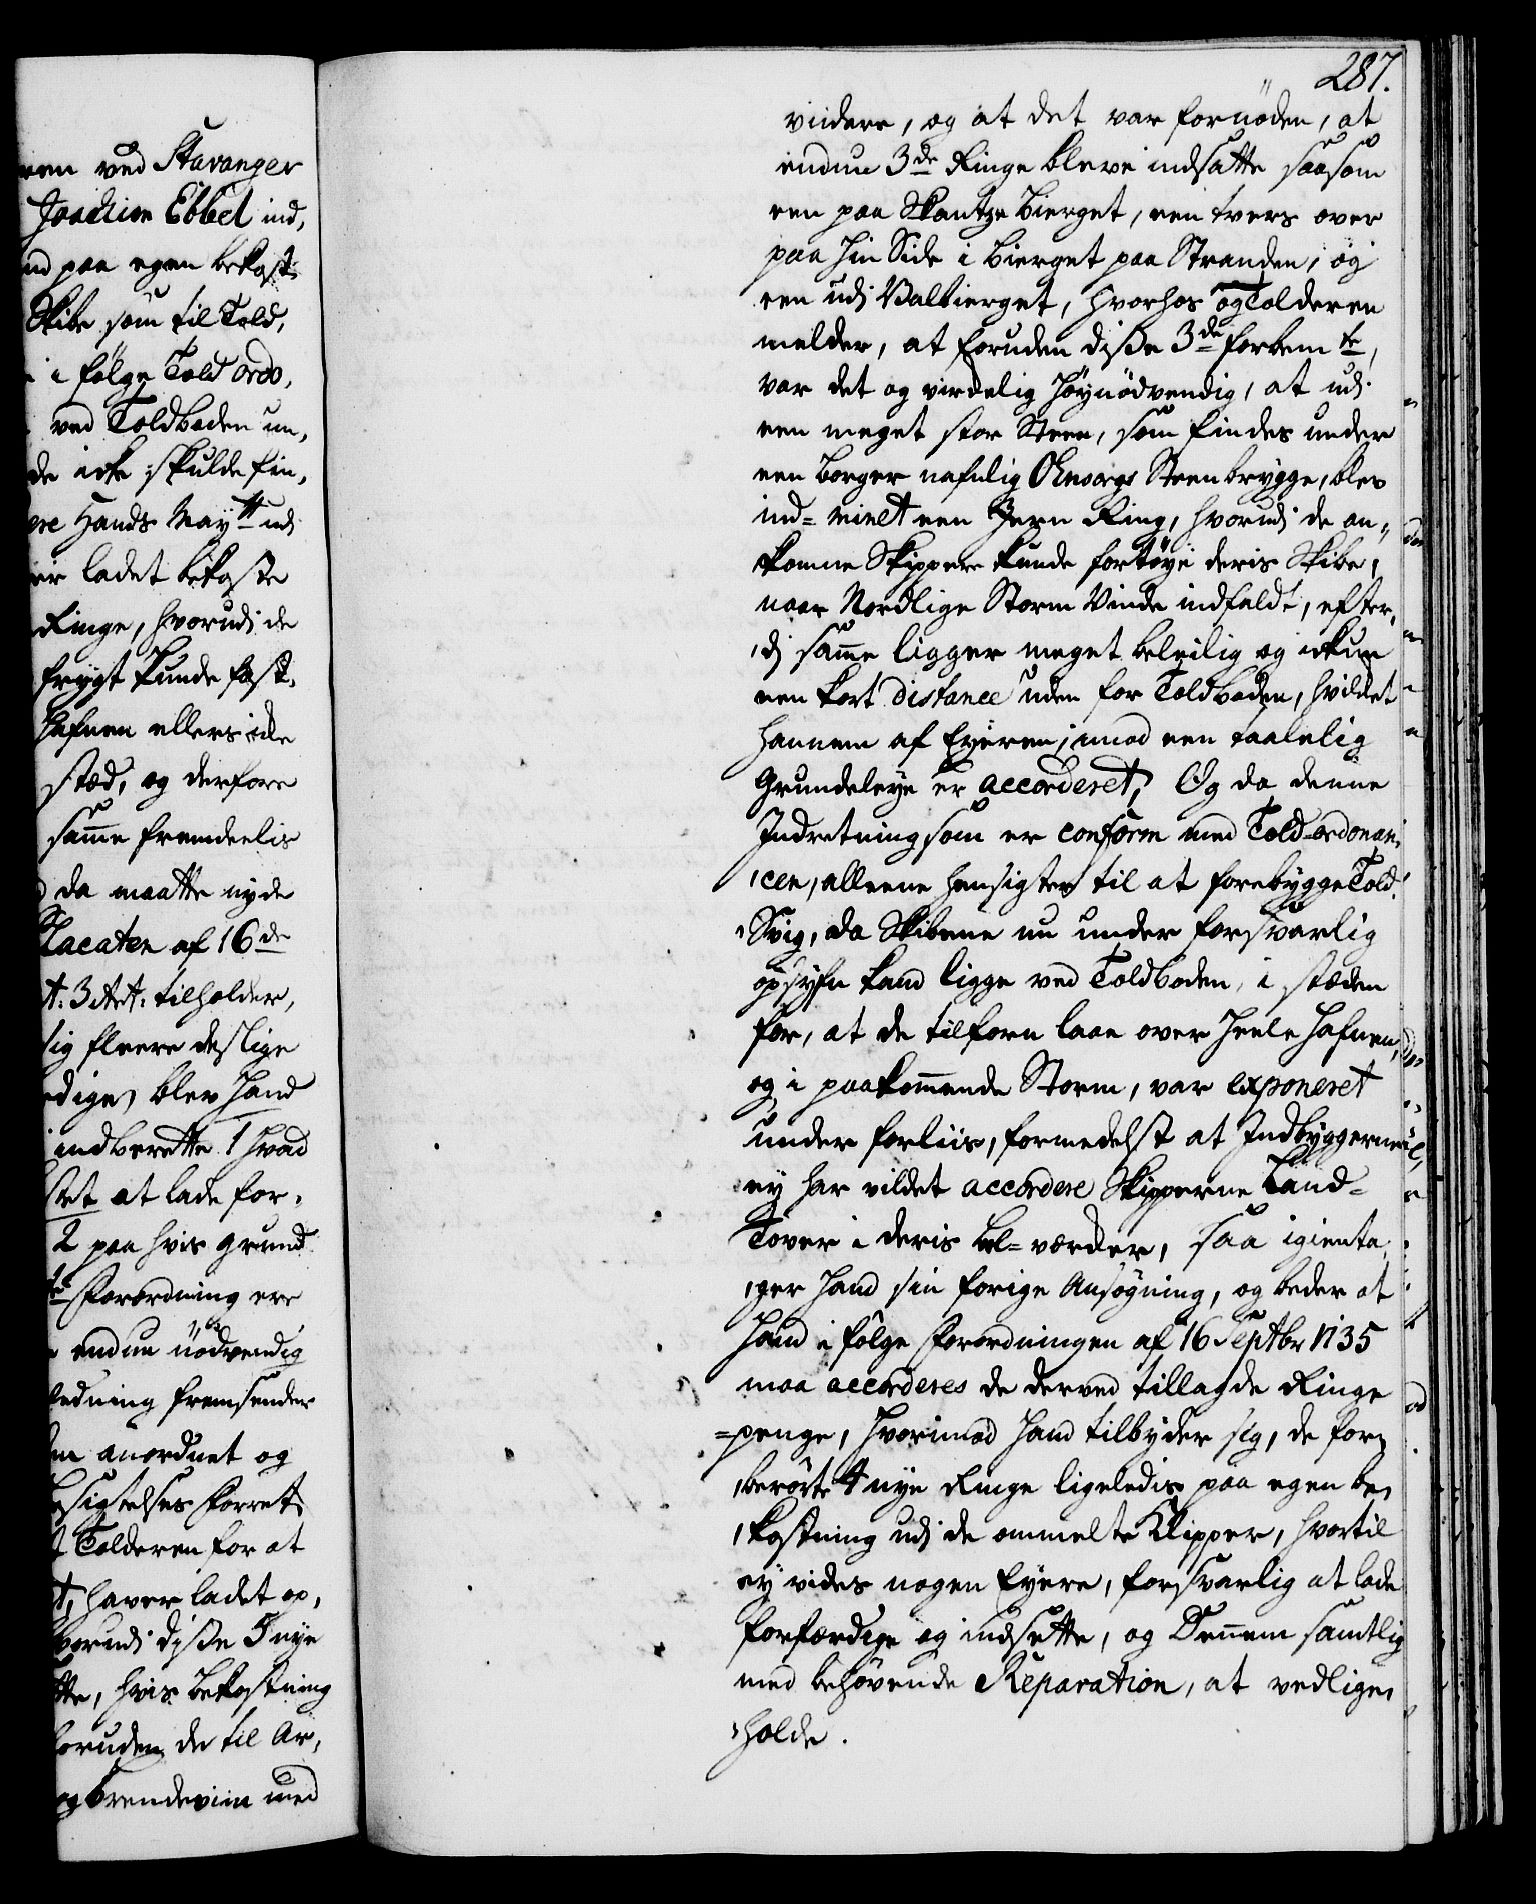 ven ved Stavanger
Joachim Ebbel ind,
nd paa egen bekost,
Skibe som til Told,
i følge Told ordo,
ved Toldboden un,
de icke skulde fin,
ere Hands Maytt udi
er ladet bekoste
Ringe, hvorudi de
frygt kunde fast,
Hafnen ellers icke
stæd, og derfore
samme fremdeelis
da maatte nyde
Placaten af 16de
t: 3 Art: tilholder,
sig fleere deslige
dige, blev Hand
indberette 1 hvad
stet at lade for,
2 paa hvis grund
te Forordning ere
endnu nödvendig
ledning fremsender
anordnet og
sigtelses Forret,
Tolderen for at
t, haver ladet op,
hvorudi disse 5 nye
tte, hvis bekostning
foruden de til Ar,
og brendeviin med
287.
viidere, og at det var fornöden, at
endnu 3de Ringe bleve indsatte saasom
een paa Skantze bierget, een tvers over
paa hin Side i bierget paa Stranden, og
een udi Valbierget, hvorhos og Tolderen
melder, at foruden disse 3de forbemte,
var det og virkelig höynödvendig, at udi
een meget stor Steen, som findes under
een borger nafnlig Steenbrygge, blev
ind-minet een Jern Ring, hvorudi de an,,
komne Skippere kunde fortöye deris Skibe,
naar Nordlige Storm Vinde indfaldt, efter,
,di samme ligger meget beleilig og ickun
een kort distance uden for Toldboden, hvilket
hannem af Eyeren, imod een taalelig
Grundeleye er accorderet, Og da denne
Indretning som er conform med Told-ordonan,
,cen, alleene hensigter til at forebygge Told,
,Svig, da Skibene nu under forsvarlig
opsyn kand ligge ved Toldboden, i stæden
for, at de tilforn laae over heele hafnen,
og i paakommende Storm, var exponeret
under forliis, formedelst at Indbyggerne
ey har vildet accordere Skipperne Land-
Tover i deris bol-værcker, saa igienta,
,ger hand sin forige Ansögning, og beder at
hand i fölge Forordningen af 16 Septbr 1735
maa accorderes de derved tillagde Ringe
-penge, hvorimod hand tilbyder sig, de for,
,berörte 4 nye Ringe ligeledis paa egen be,
,kostning udi de ommelte Klipper, hvortil
ey vides nogen Eyere, forsvarlig at lade
forfærdige og indsette, og Dennem samtlig
med behövende Reparation, at vedlige,
,holde.